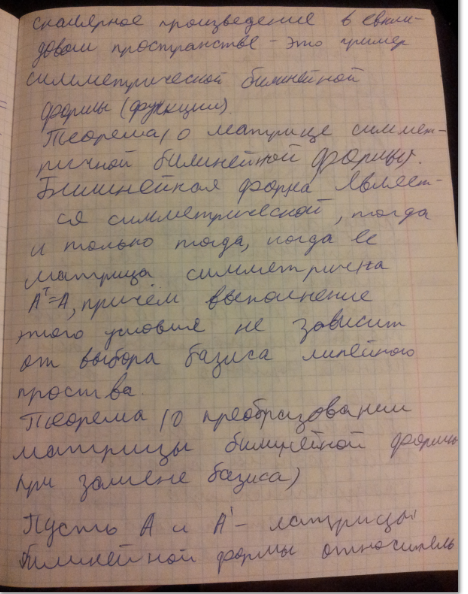 скалярное произведение в евкли-
довом пространстве - это пример
симметрической билинейной
формы (функции)
Теорема (о матрице симмет-
ричной билинейной формы).
Билинейная форма являет-
ся симметрической, тогда
и только тогда, когда ее
матрица симметрична
Aᵀ=A, причём выполнение
этого условия не зависит
от выбора базиса линейного
проства.
Теорема (о преобразовании
матрицы билинейной формы
при замене базиса)
Пусть A и A' - матрицы
билинейной формы относитель